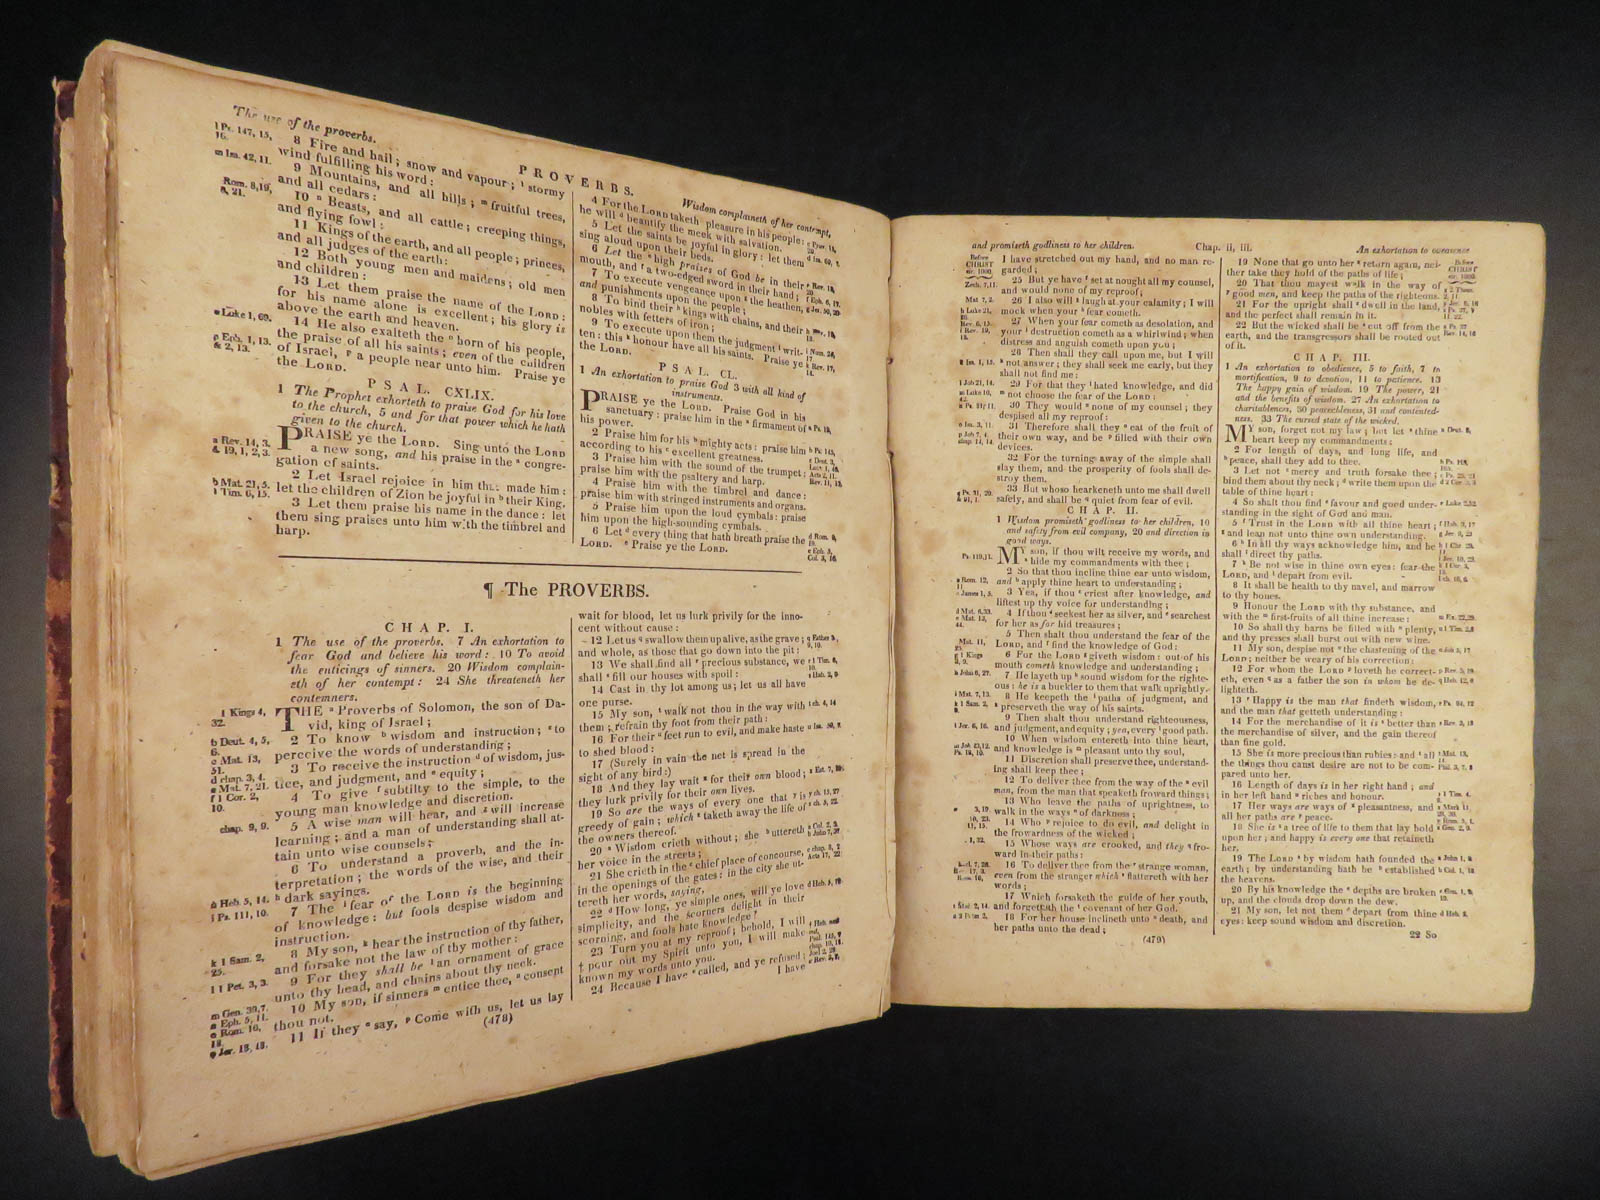 The use of the proverbs.
PROVERBS.
Wisdom complaineth of her contempt,
l Ps. 147, 15,
16.
m Isa. 42, 11.
Rom. 8,19,
& 21.
8 Fire and hail; snow and vapour; l stormy
wind fulfilling his word:
9 Mountains, and all hills; m fruitful trees,
and all cedars:
10 n Beasts, and all cattle; creeping things,
and flying fowl:
11 Kings of the earth, and all people; princes,
and all judges of the earth:
12 Both young men and maidens; old men
and children:
13 Let them praise the name of the LORD:
for his name alone is excellent; his glory is
above the earth and heaven.
o Luke 1, 69.
14 He also exalteth the o horn of his people,
the praise of all his saints; even of the children
p Eph. 1, 13.
& 2, 13.
of Israel, p a people near unto him. Praise ye
the LORD.
PSAL. CXLIX.
1 The Prophet exhorteth to praise God for his love
to the church, 5 and for that power which he hath
given to the church.
a Rev. 14, 3.
& 19, 1, 2, 3.
PRAISE ye the LORD. Sing unto the LORD
a new song, and his praise in the a congre-
gation of saints.
b Mat. 21, 5.
1 Tim. 6, 15.
2 Let Israel rejoice in him that made him:
let the children of Zion be joyful in b their King.
3 Let them praise his name in the dance: let
them sing praises unto him with the timbrel and
harp.
4 For the LORD taketh pleasure in his people:
he will d beautify the meek with salvation.
5 Let the saints be joyful in glory: let them
sing aloud upon their beds.
6 Let the e high praises of God be in their
mouth, and f a two-edged sword in their hand;
7 To execute vengeance upon g the heathen,
and punishments upon the people;
8 To bind their h kings with chains, and their
nobles with fetters of iron;
9 To execute upon them the judgment i writ-
ten: this k honour have all his saints. Praise ye
the LORD.
PSAL. CL.
1 An exhortation to praise God 3 with all kind of
instruments.
PRAISE ye the LORD. Praise God in his
sanctuary: praise him in the a firmament of
his power.
2 Praise him for his b mighty acts: praise him
according to his c excellent greatness.
3 Praise him with the sound of the trumpet:
praise him with the psaltery and harp.
4 Praise him with the timbrel and dance:
praise him with stringed instruments and organs.
5 Praise him upon the loud cymbals: praise
him upon the high-sounding cymbals.
6 Let d every thing that hath breath praise the
LORD. e Praise ye the LORD.
¶ The PROVERBS.
CHAP. I.
1 The use of the proverbs. 7 An exhortation to
fear God and believe his word: 10 To avoid
the enticings of sinners. 20 Wisdom complain-
eth of her contempt: 24 She threateneth her
contemners.
1 Kings 4,
32.
THE a Proverbs of Solomon, the son of Da-
vid, king of Israel;
b Deut. 4, 5,
6.
2 To know b wisdom and instruction; c to
perceive the words of understanding;
c Mat. 13,
51.
3 To receive the instruction d of wisdom, jus-
tice, and judgment, and e equity;
d chap. 3, 4.
e Mat. 7, 21.
f 1 Cor. 2,
10.
4 To give f subtilty to the simple, to the
young man knowledge and discretion.
chap. 9, 9.
5 A wise man will hear, and g will increase
learning; and a man of understanding shall at-
tain unto wise counsels;
6 To understand a proverb, and the in-
terpretation; the words of the wise, and their
h Heb. 5, 14.
h dark sayings.
i Ps. 111, 10.
7 The i fear of the LORD is the beginning
of knowledge: but fools despise wisdom and
instruction.
k 1 Sam. 2,
25.
8 My son, k hear the instruction of thy father,
and forsake not the law of thy mother:
l 1 Pet. 3, 3.
9 For they shall be l an ornament of grace
unto thy head, and chains about thy neck.
m Gen. 39,7.
n Eph. 5, 11.
10 My son, if sinners m entice thee, n consent
thou not.
o Rom. 16,
18.
11 If they o say, p Come with us, let us lay
p Jer. 18, 18.
wait for blood, let us lurk privily for the inno-
cent without cause:
12 Let us q swallow them up alive, as the grave;
and whole, as those that go down into the pit:
13 We shall find all r precious substance, we
shall s fill our houses with spoil:
14 Cast in thy lot among us; let us all have
one purse.
15 My son, t walk not thou in the way with
them; refrain thy foot from their path:
16 For their u feet run to evil, and make haste
to shed blood:
17 (Surely in vain the net is spread in the
sight of any bird:)
18 And they lay wait x for their own blood;
they lurk privily for their own lives.
19 So are the ways of every one that y is
greedy of gain; which z taketh away the life of
the owners thereof.
20 a Wisdom crieth without; she b uttereth
her voice in the streets;
21 She crieth in the c chief place of concourse,
in the openings of the gates: in the city she ut-
tereth her words, saying,
22 d How long, ye simple ones, will ye love
simplicity, and the scorners delight in their
scorning, and fools hate knowledge?
23 Turn you at my reproof; behold, I will
† pour out my Spirit unto you, I will make
known my words unto you.
24 Because I have e called, and ye refused;
I have
(478)
and promiseth godliness to her children.
Chap. ii, iii.
An exhortation to obedience
Before
CHRIST
cir. 1000.
I have stretched out my hand, and no man re-
garded;
Zech. 7, 11.
25 But ye have f set at nought all my counsel,
and would none of my reproof:
Mat 7, 2.
26 I also will g laugh at your calamity; I will
mock when your h fear cometh.
27 When your fear cometh as desolation, and
your i destruction cometh as a whirlwind; when
distress and anguish cometh upon you;
k Isa. 1, 15.
28 Then shall they call upon me, but I will
k not answer; they shall seek me early, but they
shall not find me:
l Job 21, 14.
29 For that they l hated knowledge, and did
m not choose the fear of the LORD:
n Ps. 81, 11.
30 They would n none of my counsel; they
despised all my reproof:
o Isa. 3, 11.
31 Therefore shall they o eat of the fruit of
their own way, and be p filled with their own
devices.
32 For the turning away of the simple shall
slay them, and the prosperity of fools shall de-
stroy them.
33 But whoso hearkeneth unto me shall dwell
safely, and shall be q quiet from fear of evil.
CHAP. II.
1 Wisdom promiseth godliness to her children, 10
and safety from evil company, 20 and direction in
good ways.
Ps. 119,11.
MY son, if thou wilt receive my words, and
a hide my commandments with thee;
2 So that thou incline thine ear unto wisdom,
and b apply thine heart to understanding;
c James 1, 5.
3 Yea, if thou c criest after knowledge, and
liftest up thy voice for understanding;
d Mat. 6,33.
4 If thou d seekest her as silver, and e searchest
for her as for hid treasures;
5 Then shalt thou understand the fear of the
LORD, and f find the knowledge of God:
6 For the LORD g giveth wisdom: out of his
mouth cometh knowledge and understanding;
h John 6, 27.
7 He layeth up h sound wisdom for the righte-
ous: he is a buckler to them that walk uprightly.
i Mat. 7, 13.
8 He keepeth the i paths of judgment, and
k preserveth the way of his saints.
9 Then shalt thou understand righteousness,
and judgment, and equity; yea, every l good path.
10 When wisdom entereth into thine heart,
and knowledge is m pleasant unto thy soul,
11 Discretion shall preserve thee, understand-
ing shall keep thee;
12 To deliver thee from the way of the n evil
man, from the man that speaketh froward things;
13 Who leave the paths of uprightness, to
walk in the ways o of darkness;
14 Who p rejoice to do evil, and delight in
the frowardness of the wicked;
15 Whose ways are crooked, and they q fro-
ward in their paths:
16 To deliver thee from the r strange woman,
even from the stranger which s flattereth with her
words;
t Mal. 2, 14.
17 Which forsaketh the guide of her youth,
and forgetteth the t covenant of her God.
18 For her house inclineth unto u death, and
her paths unto the dead;
Before
CHRIST
cir. 1000.
19 None that go unto her x return again, nei-
ther take they hold of the paths of life;
20 That thou mayest walk in the way of
y good men, and keep the paths of the righteous.
21 For the upright shall z dwell in the land,
and the perfect shall remain in it.
22 But the wicked shall a cut off from the
earth, and the transgressors shall be rooted out
of it.
CHAP. III.
1 An exhortation to obedience, 5 to faith, 7 to
mortification, 9 to devotion, 11 to patience. 13
The happy gain of wisdom. 19 The power, 21
and the benefits of wisdom. 27 An exhortation to
charitableness, 30 peaceableness, 31 and contented-
ness. 33 The cursed state of the wicked.
MY son, forget not my law; but let a thine
heart keep my commandments:
2 For length of days, and long life, and
b peace, shall they add to thee.
3 Let not c mercy and truth forsake thee;
bind them about thy neck; d write them upon the
table of thine heart:
4 So shalt thou find e favour and good under-
standing in the sight of God and man.
5 f Trust in the LORD with all thine heart;
g and lean not unto thine own understanding.
6 h In all thy ways acknowledge him, and he
shall i direct thy paths.
7 k Be not wise in thine own eyes: fear the
LORD, and l depart from evil.
8 It shall be health to thy navel, and marrow
to thy bones.
9 Honour the LORD with thy substance, and
with the m first-fruits of all thine increase:
10 So shall thy barns be filled with n plenty,
and thy presses shall burst out with new wine.
11 My son, despise not o the chastening of the
LORD; neither be weary of his correction:
12 For whom the LORD p loveth he correct-
eth, even q as a father the son in whom he de-
lighteth.
13 r Happy is the man that findeth wisdom,
and the man that getteth understanding:
14 For the merchandise of it is s better than
the merchandise of silver, and the gain thereof
than fine gold.
15 She is more precious than rubies: and t all
the things thou canst desire are not to be com-
pared unto her.
16 Length of days is in her right hand; and
in her left hand u riches and honour.
17 Her ways are ways of x pleasantness, and
all her paths are y peace.
18 She is z a tree of life to them that lay hold
upon her; and happy is every one that retaineth
her.
19 The LORD a by wisdom hath founded the
earth; by understanding hath he b established
the heavens.
20 By his knowledge the c depths are broken
up, and the clouds drop down the dew.
21 My son, let not them d depart from thine
eyes: keep sound wisdom and discretion.
(479)
22 So